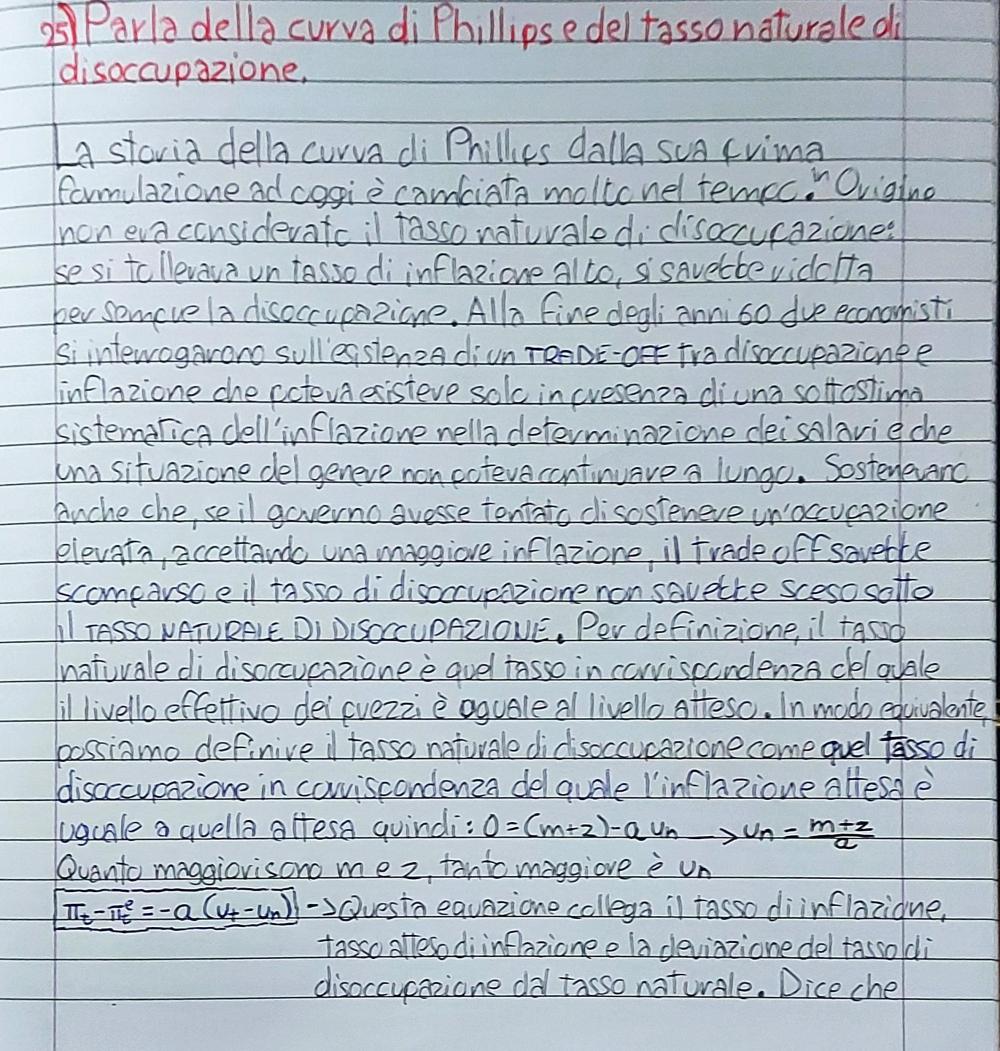 25) Parla della curva di Phillips e del tasso naturale di
disoccupazione.
La storia della curva di Phillips dalla sua prima
formulazione ad oggi è cambiata molto nel tempo. In Origine
non era considerato il tasso naturale di disoccupazione:
se si tollerava un tasso di inflazione alto, si sarebbe ridotta
per sempre la disoccupazione. Alla fine degli anni 60 due economisti
si interrogarono sull'esistenza di un TRADE-OFF tra disoccupazione e
inflazione che poteva esistere solo in presenza di una sottostima
sistematica dell'inflazione nella determinazione dei salari e che
una situazione del genere non poteva continuare a lungo. Sostenevano
anche che, se il governo avesse tentato di sostenere un'occupazione
elevata, accettando una maggiore inflazione, il trade off sarebbe
scomparso e il tasso di disoccupazione non sarebbe sceso sotto
il TASSO NATURALE DI DISOCCUPAZIONE. Per definizione, il tasso
naturale di disoccupazione è quel tasso in corrispondenza del quale
il livello effettivo dei prezzi è uguale al livello atteso. In modo equivalente,
possiamo definire il tasso naturale di disoccupazione come quel tasso di
disoccupazione in corrispondenza del quale l'inflazione attesa è
uguale a quella attesa quindi: 0 = (m+z) - a un → un = m+z/a
Quanto maggiori sono m e z, tanto maggiore è un
πt - πᵉt = -a (ut - un) -> Questa equazione collega il tasso di inflazione,
tasso atteso di inflazione e la deviazione del tasso di
disoccupazione dal tasso naturale. Dice che